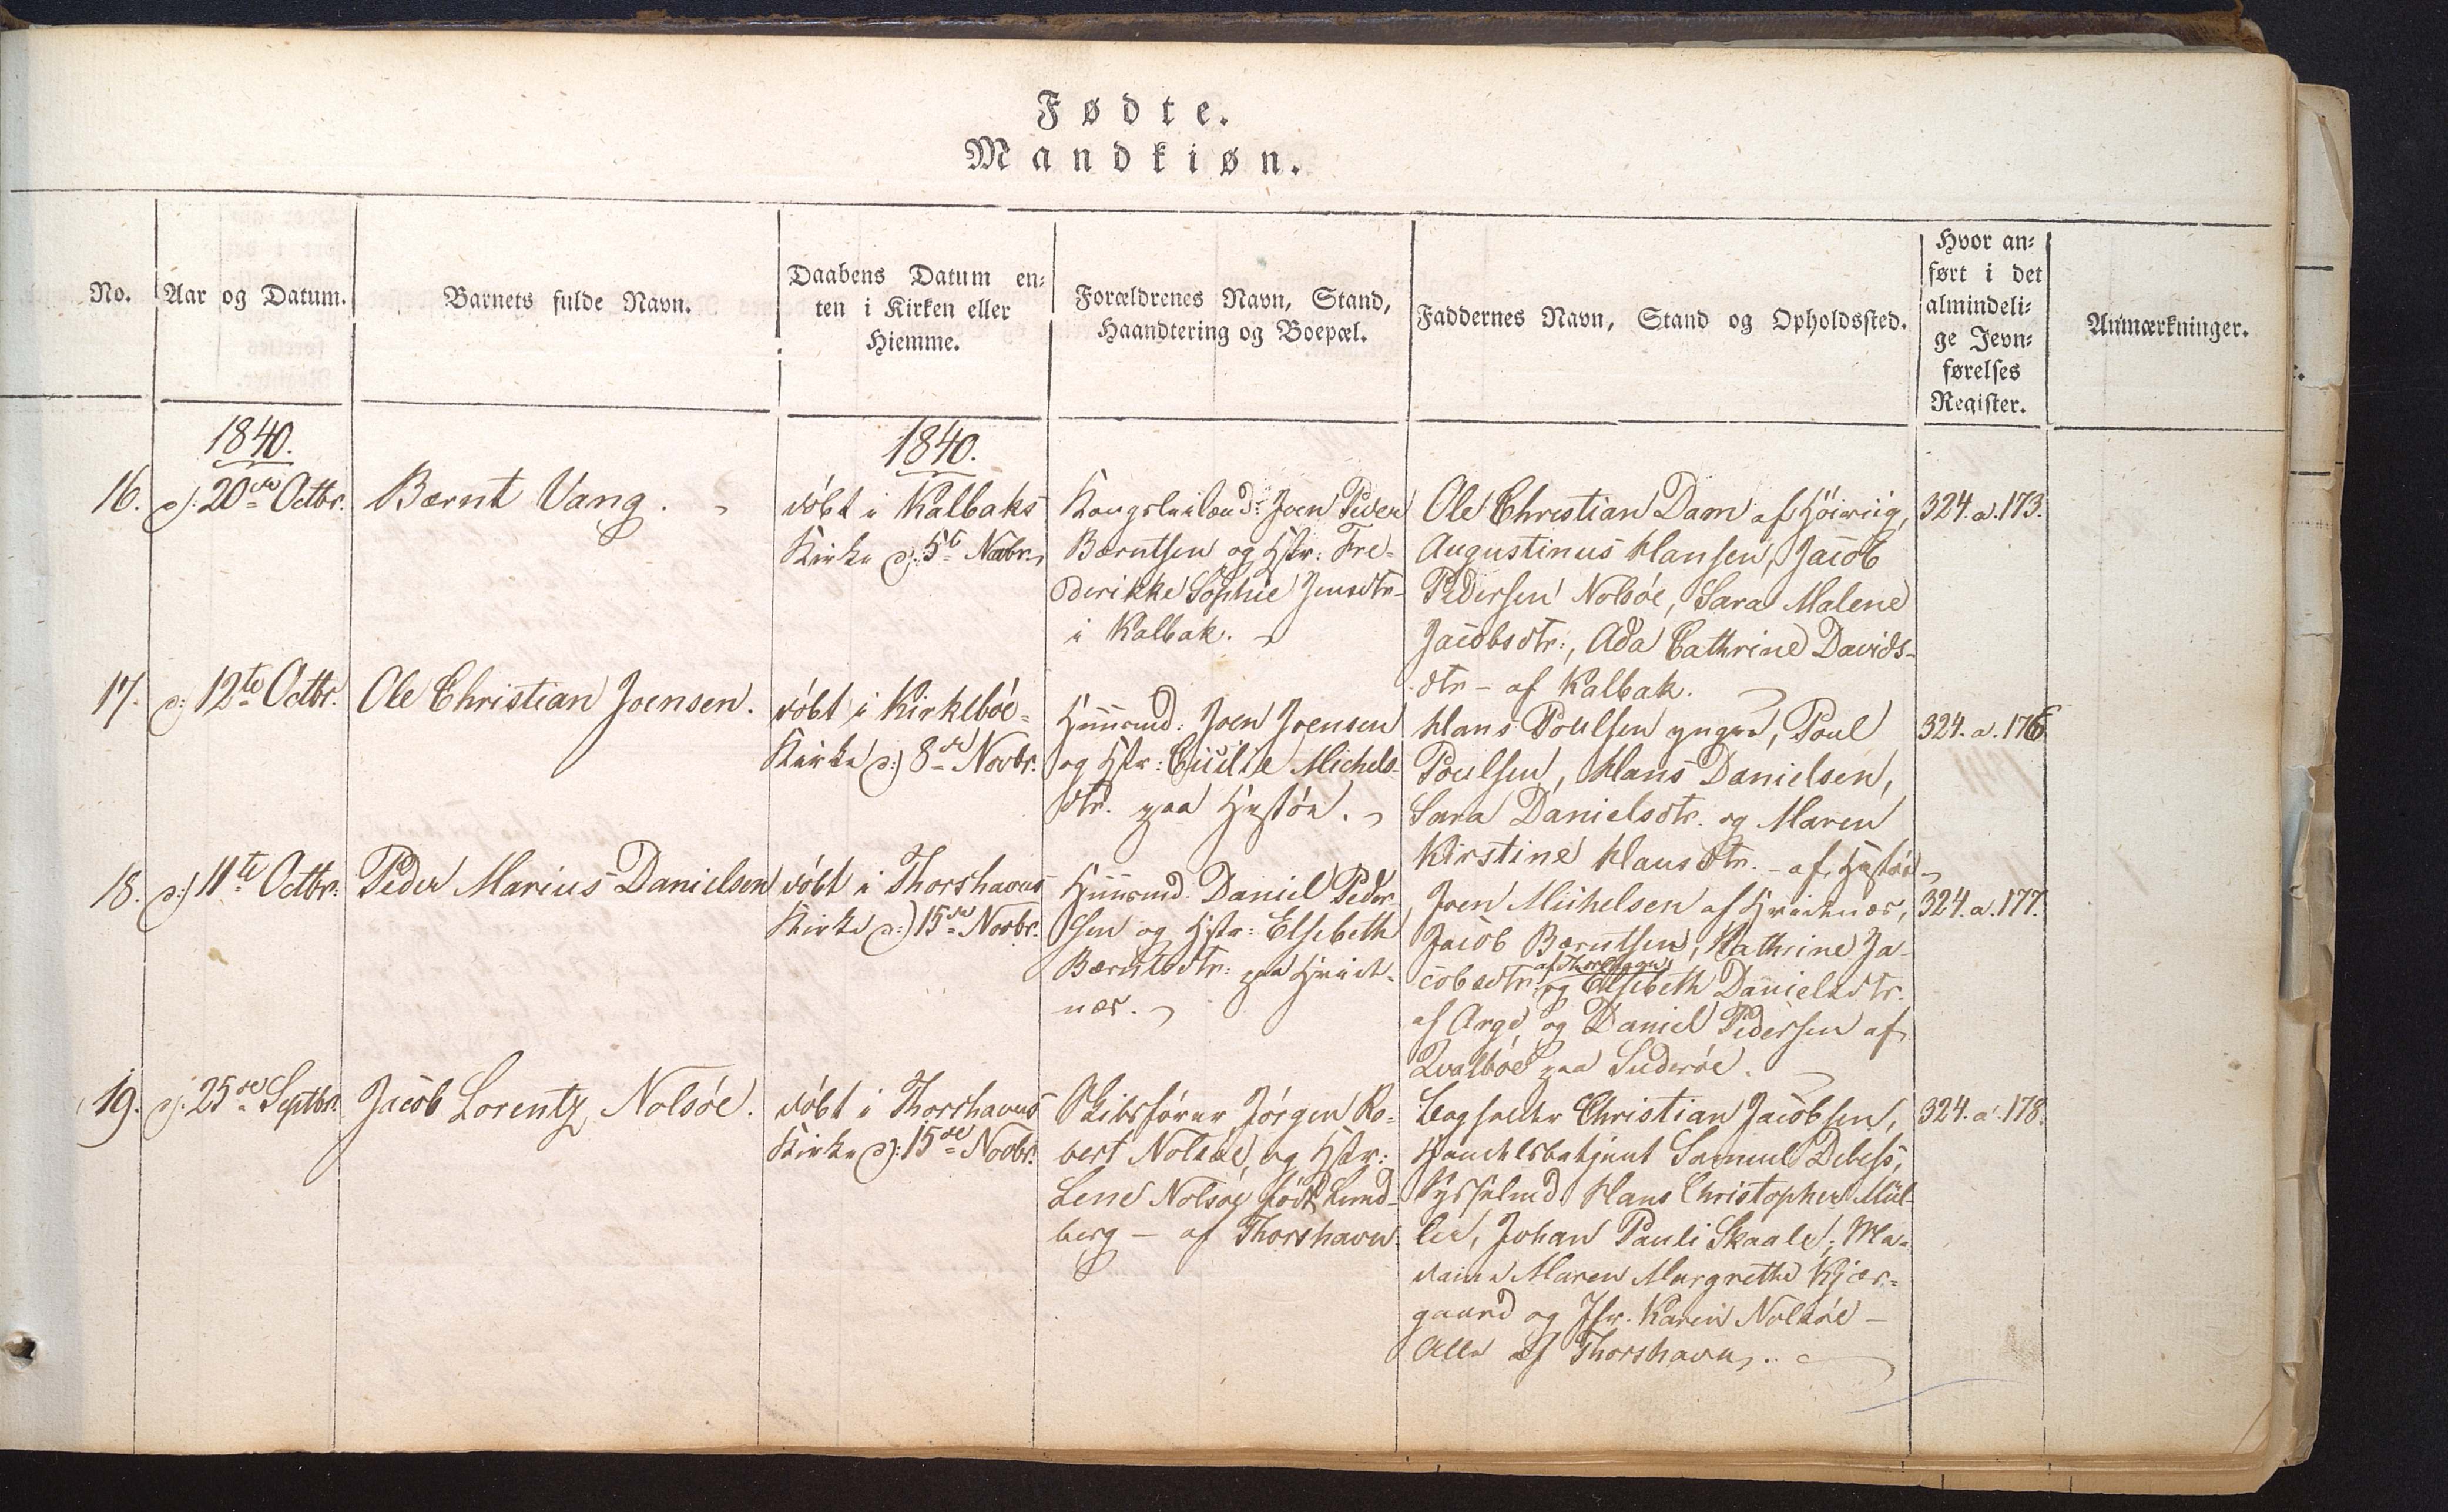 Fødte.
Mandkiøn.
No.
Aar og Datum.
Barnets fulde Navn.
Daabens Datum en-
ten i Kirken eller
Hiemme.
Forældrenes Navn, Stand,
Haandtering og Boepæl.
Faddernes Navn, Stand og Opholdssted.
Hvor an-
ført i det
almindeli-
ge Jevn-
førelses
Register.
Anmærkninger.
1840.
1840.
16.
d: 20de Octbr.
Bærnt Vang.
døbt i Kalbaks
Kirke d: 5t Novbr.
Kongsleilænd: Joen Peder
Bærntsen og Hstr: Fre-
derikke Sophie Jensdtr-
i Kalbak.
Ole Christian Dam af Höiviig,
Augustinus Hansen, Jacob
Pedersen Nolsöe, Sara Malene
Jacobsdtr:, Ada Cathrine Davids-
dtr - af Kalbak.
324. a. 173.
17.
d: 12te Octbr.
Ole Christian Joensen.
døbt i Kirkeböe-
Kirke d: 8de Novbr.
Huusmd: Joen Joensen
og Hstr: Cicilie Michels-
dtr. paa Hestöe.
Hans Poulsen yngre, Poul
Poulsen, Hans Danielsen,
Sara Danielsdtr. og Maren
Kirstine Hansdtr. - af Hestöe
324. a. 176
18.
d: 11te Octbr.
Peder Marius Danielsen
døbt i Thorshavns
Kirke d: 15de Novbr.
Huusmd. Daniel Peder-
sen og Hstr: Elsebeth
Bærntsdtr: paa Hvidt-
næs.
Joen Michelsen af Hvidtnæs,
Jacob Bærntsen, Kathrine Ja-
cobsdtr: af Thorshavn og Elsebeth Danielsdtr.
af Arge, og Daniel Pedersen af
Qvalböe paa Suderöe.
324. a. 177.
19.
d: 25de Septbr.
Jacob Lorentz Nolsöe.
døbt i Thorshavns
Kirke d: 15de Novbr.
Skibsförer Jörgen Ro-
bert Nolsöe, og Hstr:
Lene Nolsöe född Lund-
berg - af Thorshavn.
Bogholder Christian Jacobsen,
Handelsbetjent Samuel Debess,
Sysselmd. Hans Christopher Mül-
ler, Johan Pauli Skaale, Ma-
dame Maren Margrethe Kjær-
gaard og Jfr. Karen Nolsöe -
Alle af Thorshavn.
324. a. 178.